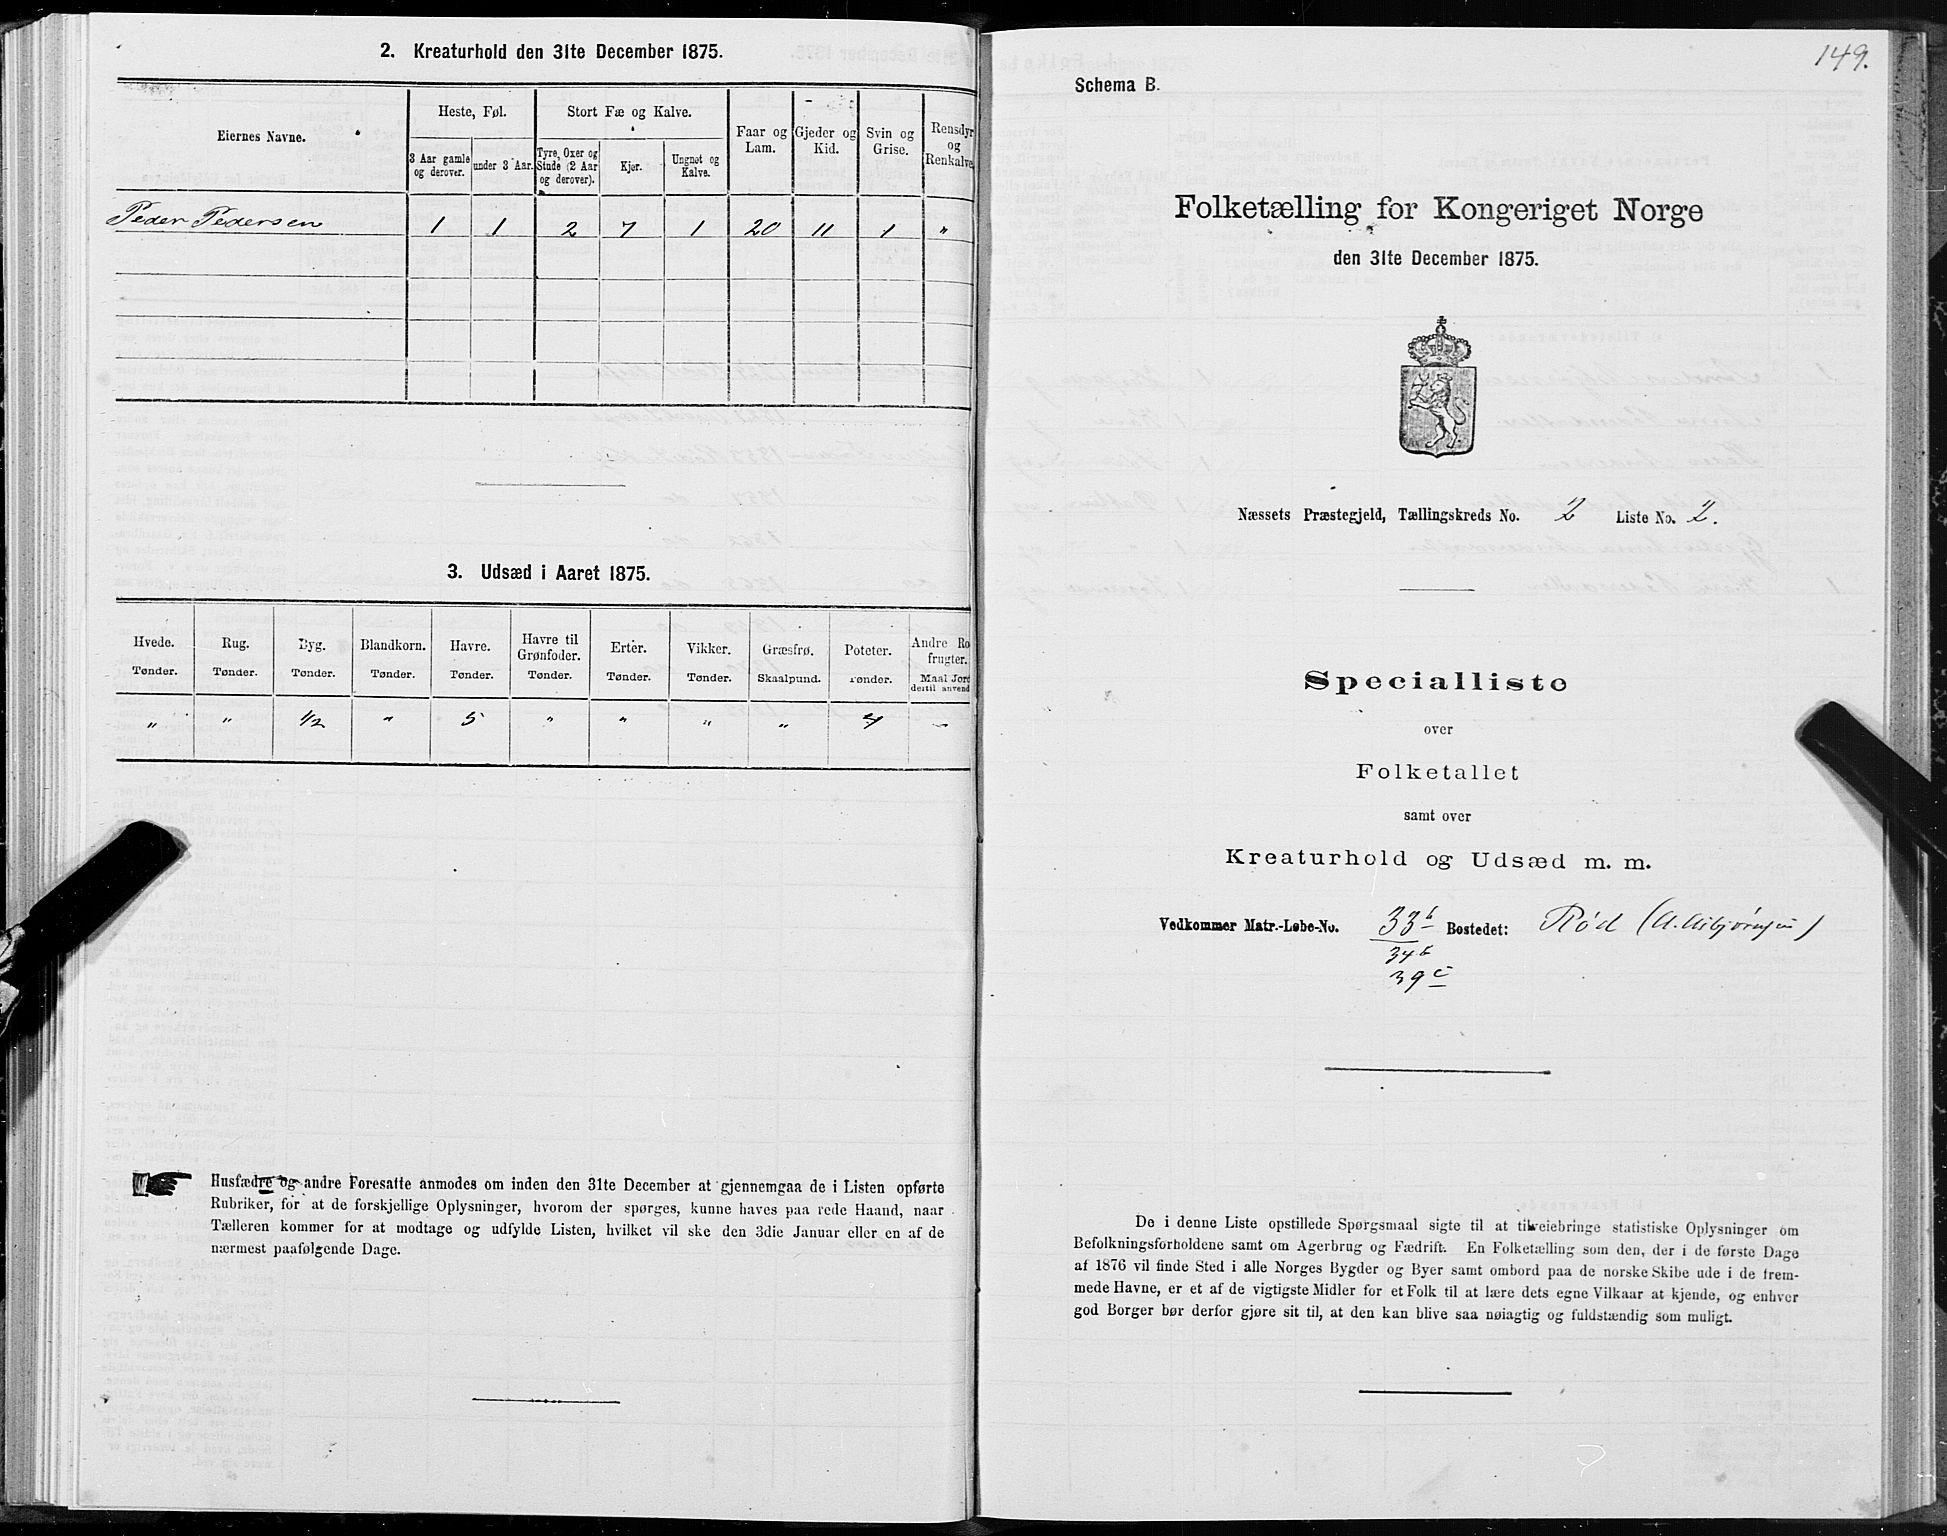 2. Kreaturhold den 31te December 1875.
Eiernes Navne.
Heste, Føl.
Stort Fæ og Kalve.
Faar og Lam.
Gjeder og Kid.
Svin og Grise.
Rensdyr og Renkalve
3 Aar gamle og derover.
under 3 Aar.
Tyre, Oxer og Stude (2 Aar og derover).
Kjør.
Ungnøt og Kalve.
Peder Pedersen 1 1 2 7 1 20 11 1 "
3. Udsæd i Aaret 1875.
Hvede. Rug. Byg. Blandkorn. Havre. Havre til Grønfoder. Erter. Vikker. Græsfrø. Poteter. Andre Ro frugter.
Tønder. Tønder. Tønder. Tønder. Tønder. Tønder. Tønder. Tønder. Skaalpund. Tønder. Maal Jord dertil anvend
" " 1/2 " 5 " " " " 4 –
Husfædre og andre Foresatte anmodes om inden den 31te December at gjennemgaa de i Listen opførte
Rubriker, for at de forskjellige Oplysninger, hvorom der spørges, kunne haves paa rede Haand, naar
Tælleren kommer for at modtage og udfylde Listen, hvilket vil ske den 3die Januar eller en af de
nærmest paafølgende Dage.
149.
Schema B.
Folketælling for Kongeriget Norge
den 31te December 1875.
Næssets Præstegjeld, Tællingskreds No. 2 Liste No. 2.
Specialliste
over
Folketallet
samt over
Kreaturhold og Udsæd m. m.
Vedkommer Matr.-Løbe-No. 33b Bostedet: Rød (A. Asbjørnsen)
34b
39c
De i denne Liste opstillede Spørgsmaal sigte til at tilveiebringe statistiske Oplysninger om
Befolkningsforholdene samt om Agerbrug og Fædrift. En Folketælling som den, der i de første Dage
af 1876 vil finde Sted i alle Norges Bygder og Byer samt ombord paa de norske Skibe ude i de frem-
mede Havne, er et af de vigtigste Midler for et Folk til at lære dets egne Vilkaar at kjende, og enhver
god Borger bør derfor gjøre sit til, at den kan blive saa nøiagtig og fuldstændig som muligt.